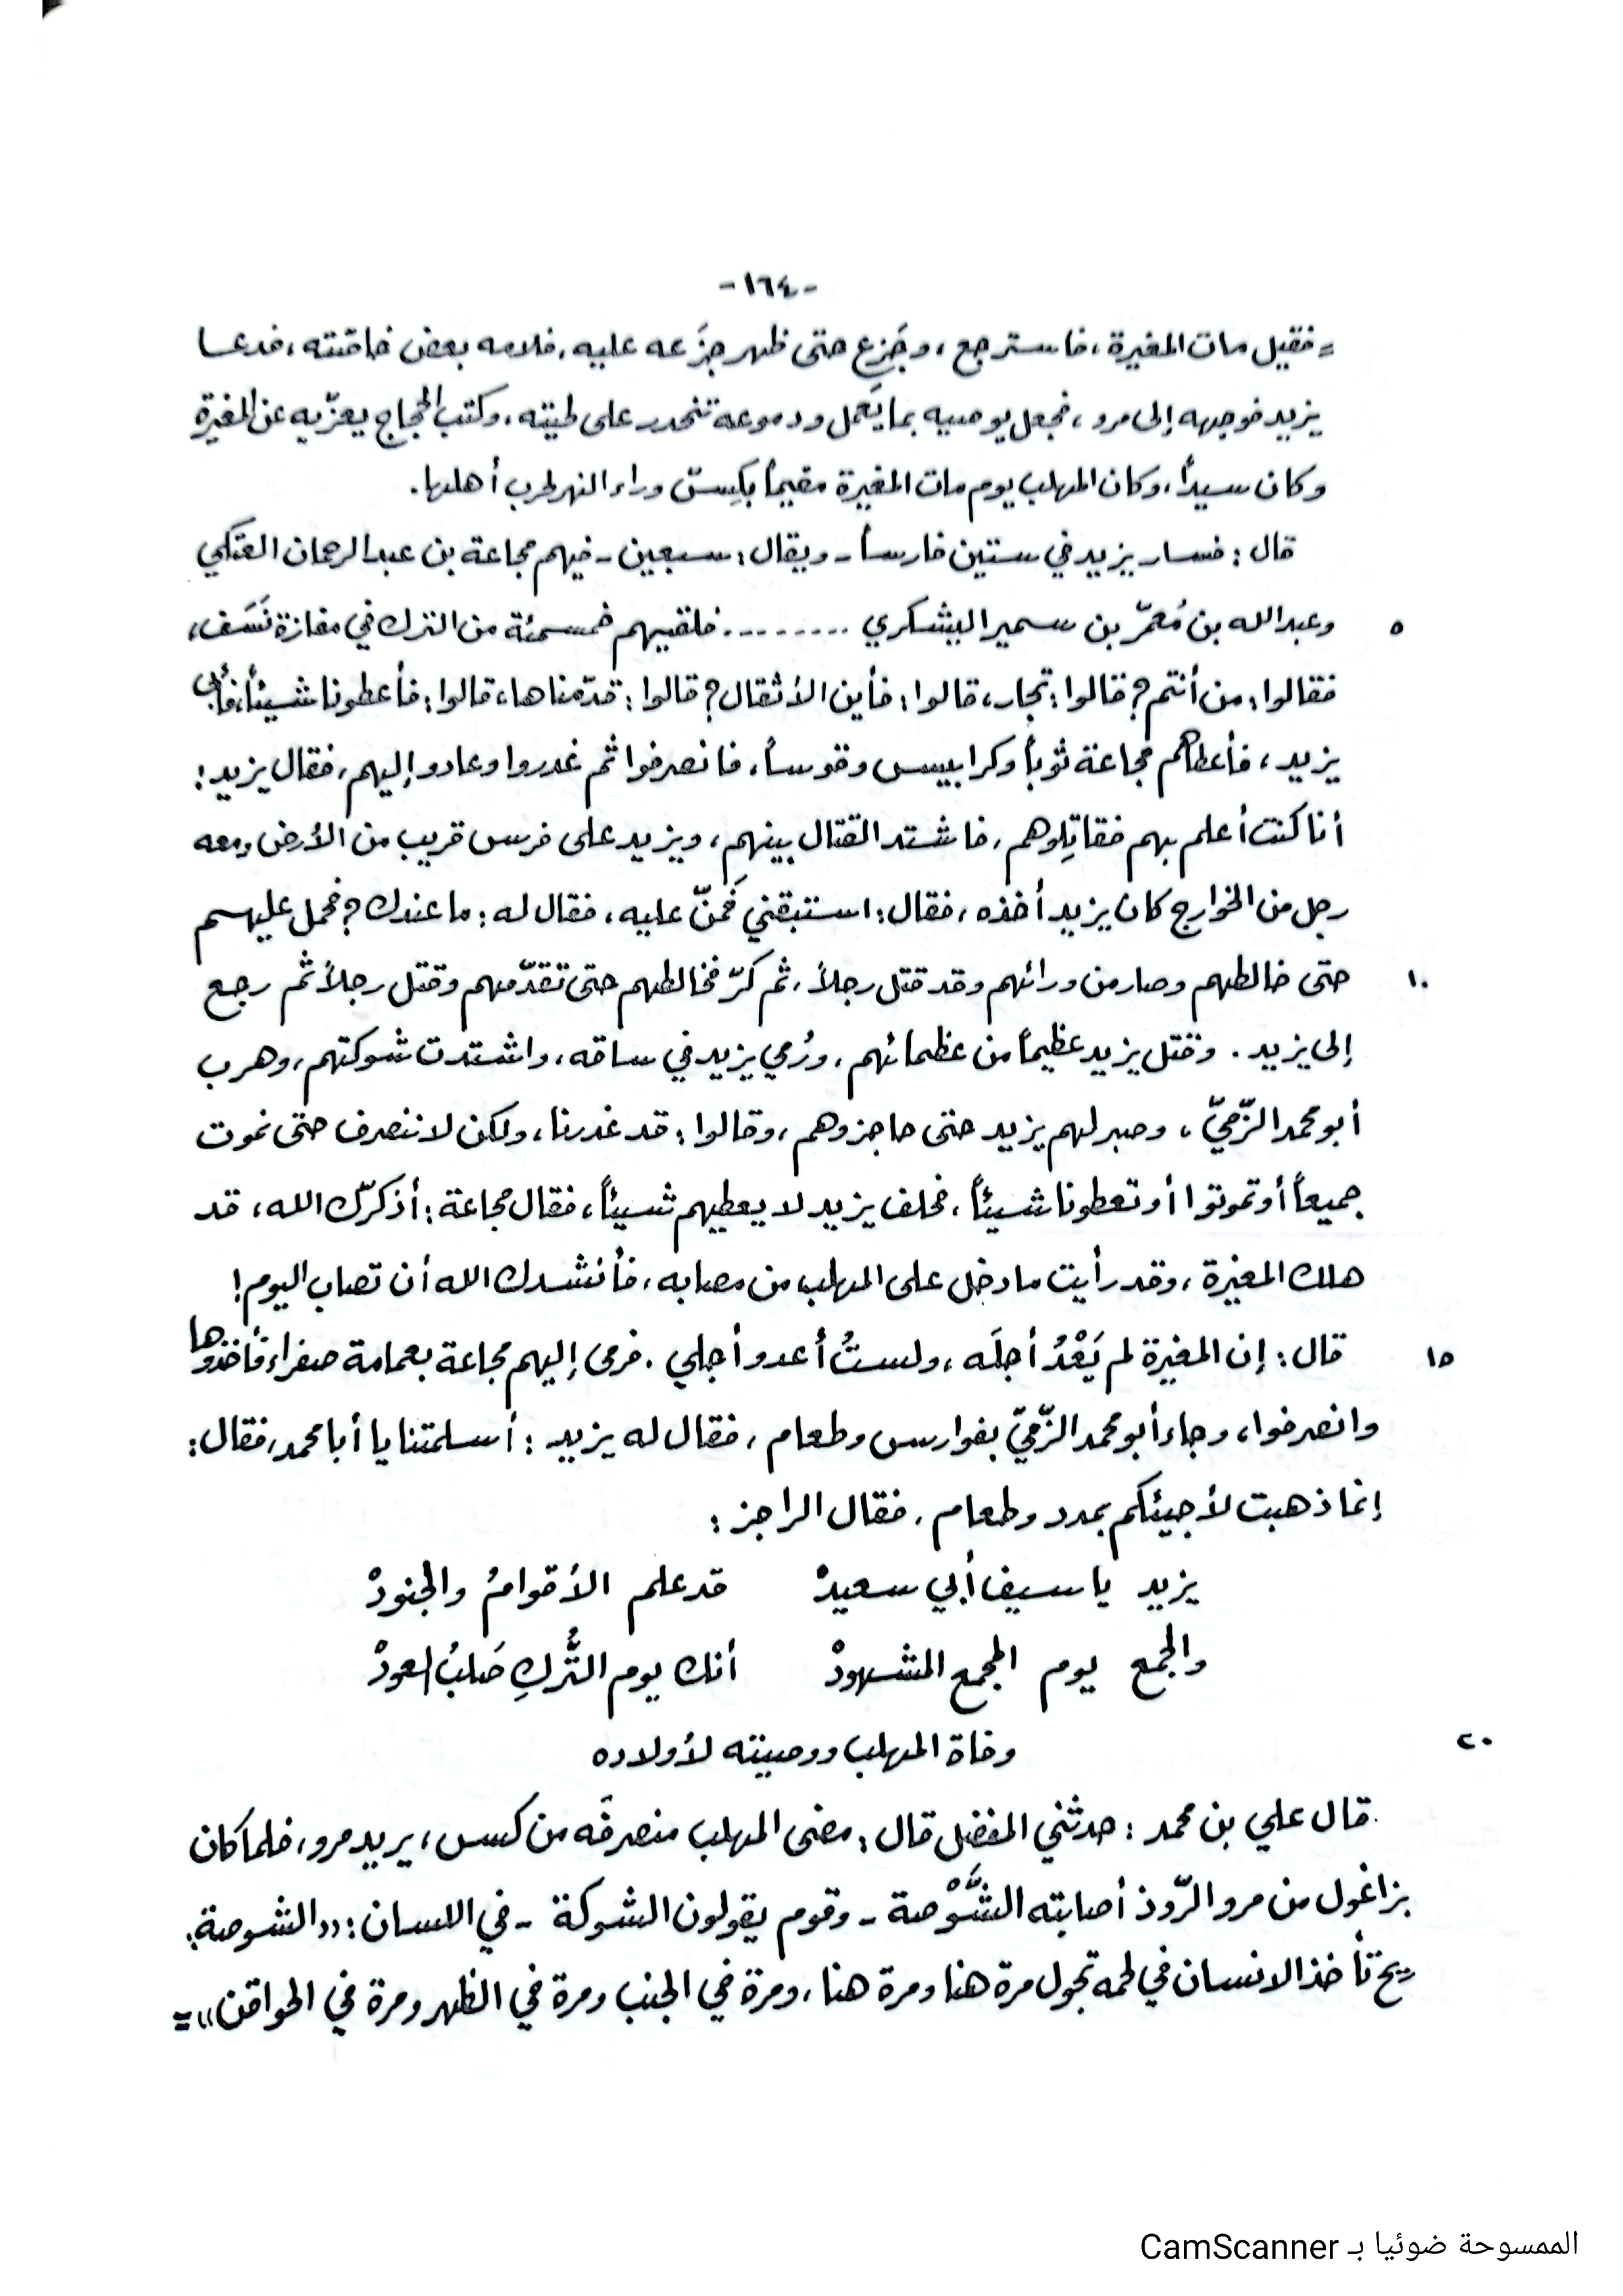 -١٦٤-
= فقيل مات المغيرة ، فاسترجع ، وجَزِع حتى ظهر جزَعه عليه ، فلامه بعض خاصّته ، فدعا
يزيد فوجهه إلى مرو ، فجعل يوصيه بما يَعمل ودموعه تنحدر على لحيته ، وكتب الحجاج يعزّيه عن المغيرة
وكان سيداً ، وكان المهلب يوم مات المغيرة مقيماً بكِسّ وراء النهر لحرب أهلها .
قال : فسار يزيد في ستين فارساً - ويقال : سبعين - فيهم مجاعة بن عبد الرحمان العتكي
٥ وعبد الله بن مُعمّر بن سمير اليشكري ......... فلقيهم خمسمئة من الترك في مفازة نَسَف ،
فقالوا : من أنتم ؟ قالوا : تجار ، قالوا : فأين الأثقال ؟ قالوا : قدّمناها ، قالوا : فأعطونا شيئاً ، فأبى
يزيد ، فأعطاهم مجاعة ثوباً وكرابيس وقوساً ، فانصرفوا ثم غدروا وعادوا إليهم ، فقال يزيد :
أنا كنت أعلم بهم فقاتِلوهم ، فاشتد القتال بينهم ، ويزيد على فرس قريب من الأرض ومعه
رجل من الخوارج كان يزيد أخذه ، فقال : استبقني فَمَنّ عليه ، فقال له : ما عندك ؟ فحمل عليهم
١٠ حتى خالطهم وصار من ورائهم وقد قتل رجلاً ، ثم كرّ فخالطهم حتى تقدّمهم وقتل رجلاً ثم رجع
إلى يزيد . وقتل يزيد عظيماً من عظمائهم ، ورُمي يزيد في ساقه ، واشتدت شوكتهم ، وهرب
أبو محمد الزّمّيّ ، وصبر لهم يزيد حتى حاجزوهم ، وقالوا : قد غدرنا ، ولكن لا ننصرف حتى نموت
جميعاً أو تموتوا أو تعطونا شيئاً ، فحلف يزيد لا يعطيهم شيئاً ، فقال مجاعة : أذكرّك الله ، قد
هلك المغيرة ، وقد رأيت ما دخل على المهلب من مصابه ، فأنشدك الله أن تصاب اليوم !
١٥ قال : إن المغيرة لم يَعْدُ أجلَه ، ولستُ أعدو أجلي . فرمى إليهم مجاعة بعمامة صفراء فأخذوها
وانصرفوا ، وجاء أبو محمد الزّمّيّ بفوارس وطعام ، فقال له يزيد : أسلمتنا يا أبا محمد ، فقال :
إنما ذهبت لأجيئكم بمدد وطعام ، فقال الراجز :
يزيد يا سيف أبي سعيدْ قد علم الأقوامُ والجنودْ
والجمع يوم المجمع المشهودْ أنك يوم التُّركِ صَلبُ العودْ
٢٠ وفاة المهلب ووصيته لأولاده
قال علي بن محمد : حدثني المفضل قال : مضى المهلب منصرفَه من كسس ، يريد مرو ، فلما كان
بزاغول من مرو الرّوذ أصابته الشَّوْصة - وقوم يقولون الشوكة - في اللسان : «الشوصة :
ريح تأخذ الانسان في لحمه تجول مرة هنا ومرة هنا ، ومرة في الجنب ومرة في الظهر ومرة في الحواقن» =
الممسوحة ضوئيا بـ CamScanner